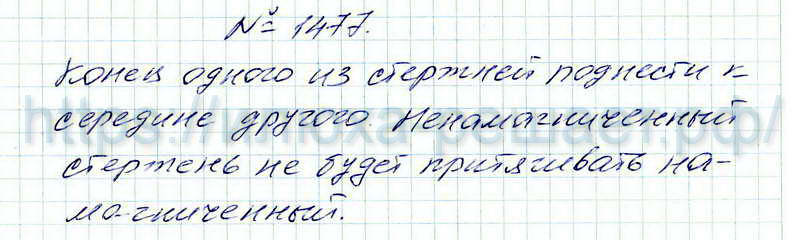 № 1477.
Конец одного из стержней поднести к
середине другого. Ненамагниченный
стержень не будет притягивать на-
магниченный.